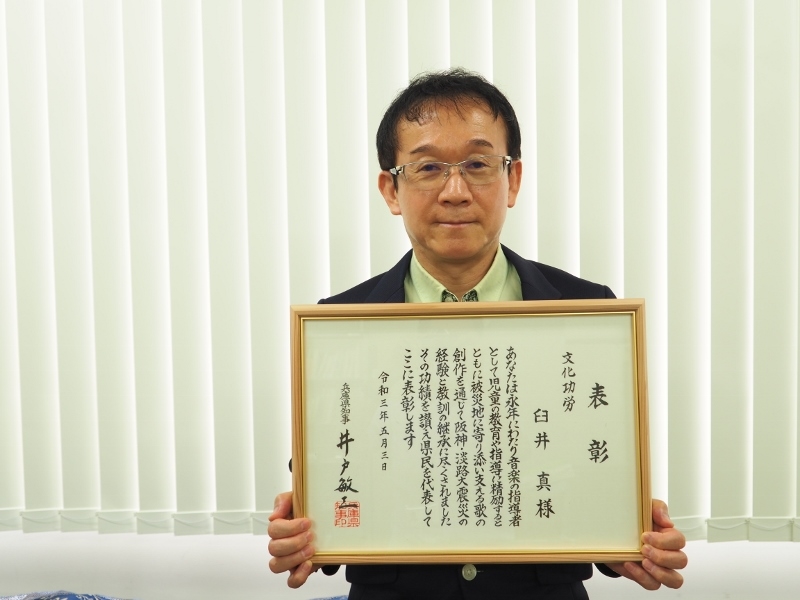 表彰
文化功労
臼井 真 様
あなたは永年にわたり音楽の指導者
として児童の教育や指導に精励すると
ともに被災地に寄り添い支える歌の
創作を通じて阪神・淡路大震災の
経験と教訓の継承に尽くされました
その功績を讃え県民を代表して
ここに表彰します
令和三年五月三日
兵庫県知事 井戸敏三